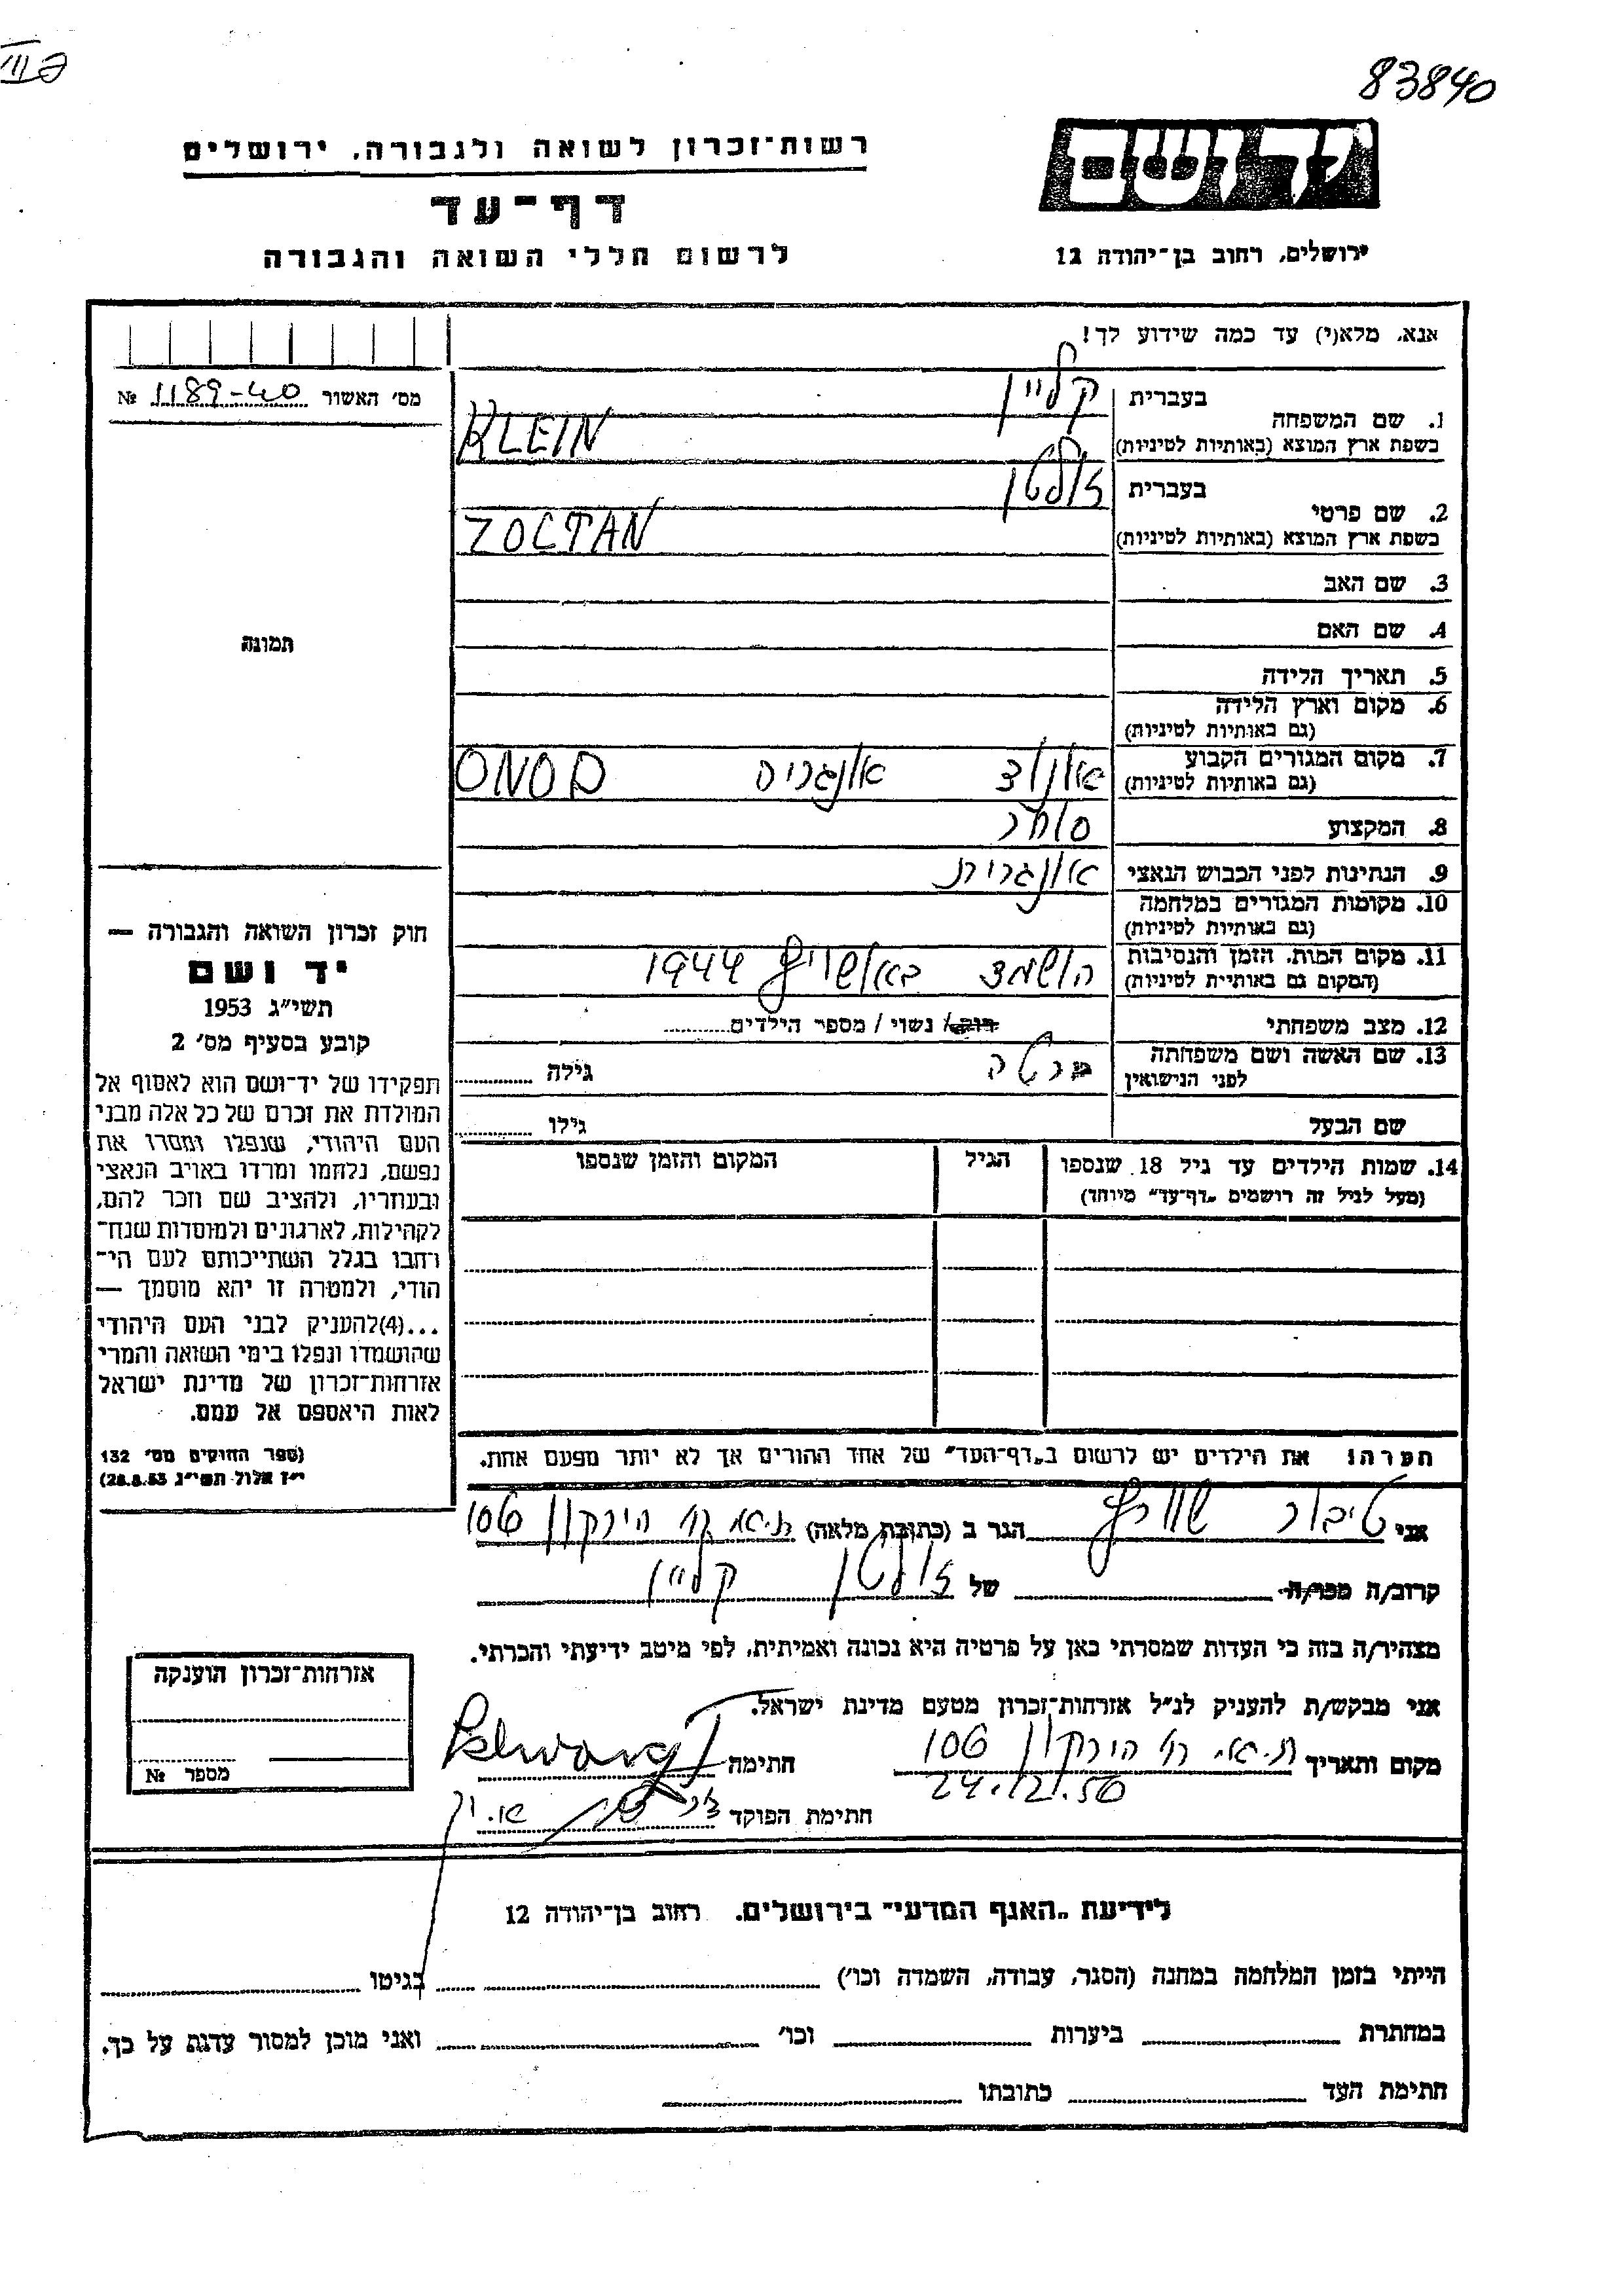 83840
יד ושם
ירושלים, רחוב בן־יהודה 12
רשות־זכרון לשואה ולגבורה, ירושלים
דף־עד
לרשום חללי השואה והגבורה
אנא, מלא(י) עד כמה שידוע לך!
מס' האשור 1189-40 №
1. שם המשפחה
בעברית קליין
בשפת ארץ המוצא (באותיות לטיניות) KLEIN
2. שם פרטי
בעברית זולטן
בשפת ארץ המוצא (באותיות לטיניות) ZOLTAN
3. שם האב
4. שם האם
5. תאריך הלידה
6. מקום וארץ הלידה
(גם באותיות לטיניות)
7. מקום המגורים הקבוע אונוד אונגריה ONOD
(גם באותיות לטיניות)
8. המקצוע סוחר
9. הנתינות לפני הכבוש הנאצי אונגרית
10. מקומות המגורים במלחמה
(גם באותיות לטיניות)
11. מקום המות, הזמן והנסיבות הושמד באושויץ 1944
(המקום גם באותיות לטיניות)
12. מצב משפחתי רווק / נשוי / מספר הילדים
13. שם האשה ושם משפחתה מרטה גילה
לפני הנישואין
שם הבעל גילו
14. שמות הילדים עד גיל 18 שנספו הגיל המקום והזמן שנספו
(מעל לגיל זה רושמים "דף־עד" מיוחד)
הערה: את הילדים יש לרשום ב"דף־העד" של אחד ההורים אך לא יותר מפעם אחת.
תמונה
חוק זכרון השואה והגבורה —
יד ושם
תשי"ג 1953
קובע בסעיף מס' 2
תפקידו של יד־ושם הוא לאסוף אל
המולדת את זכרם של כל אלה מבני
העם היהודי, שנפלו ומסרו את
נפשם, נלחמו ומרדו באויב הנאצי
ובעוזריו, ולהציב שם וזכר להם,
לקהילות, לארגונים ולמוסדות שנח־
רבו בגלל השתייכותם לעם הי־
הודי, ולמטרה זו יהא מוסמך —
...(4)להעניק לבני העם היהודי
שהושמדו ונפלו בימי השואה והמרי
אזרחות־זכרון של מדינת ישראל
לאות היאספם אל עמם.
(ספר החוקים מס' 132
י"ז אלול תשי"ג 28.8.53)
אני טיבור שוורץ הגר ב (כתובת מלאה) ת.א. רח' הירקון 106
קרוב/ה מכר/ה של זולטן קליין
מצהיר/ה בזה כי העדות שמסרתי כאן על פרטיה היא נכונה ואמיתית, לפי מיטב ידיעתי והכרתי.
אני מבקש/ת להעניק לנ"ל אזרחות־זכרון מטעם מדינת ישראל.
מקום ותאריך ת.א. רח' הירקון 106 חתימה
24.12.56
חתימת הפוקד
אזרחות־זכרון הוענקה
מספר №
לידיעת "האגף המדעי" בירושלים, רחוב בן־יהודה 12
הייתי בזמן המלחמה במחנה (הסגר, עבודה, השמדה וכו') בגיטו
במחתרת ביערות וכו' ואני מוכן למסור עדות על כך.
חתימת העד כתובתו